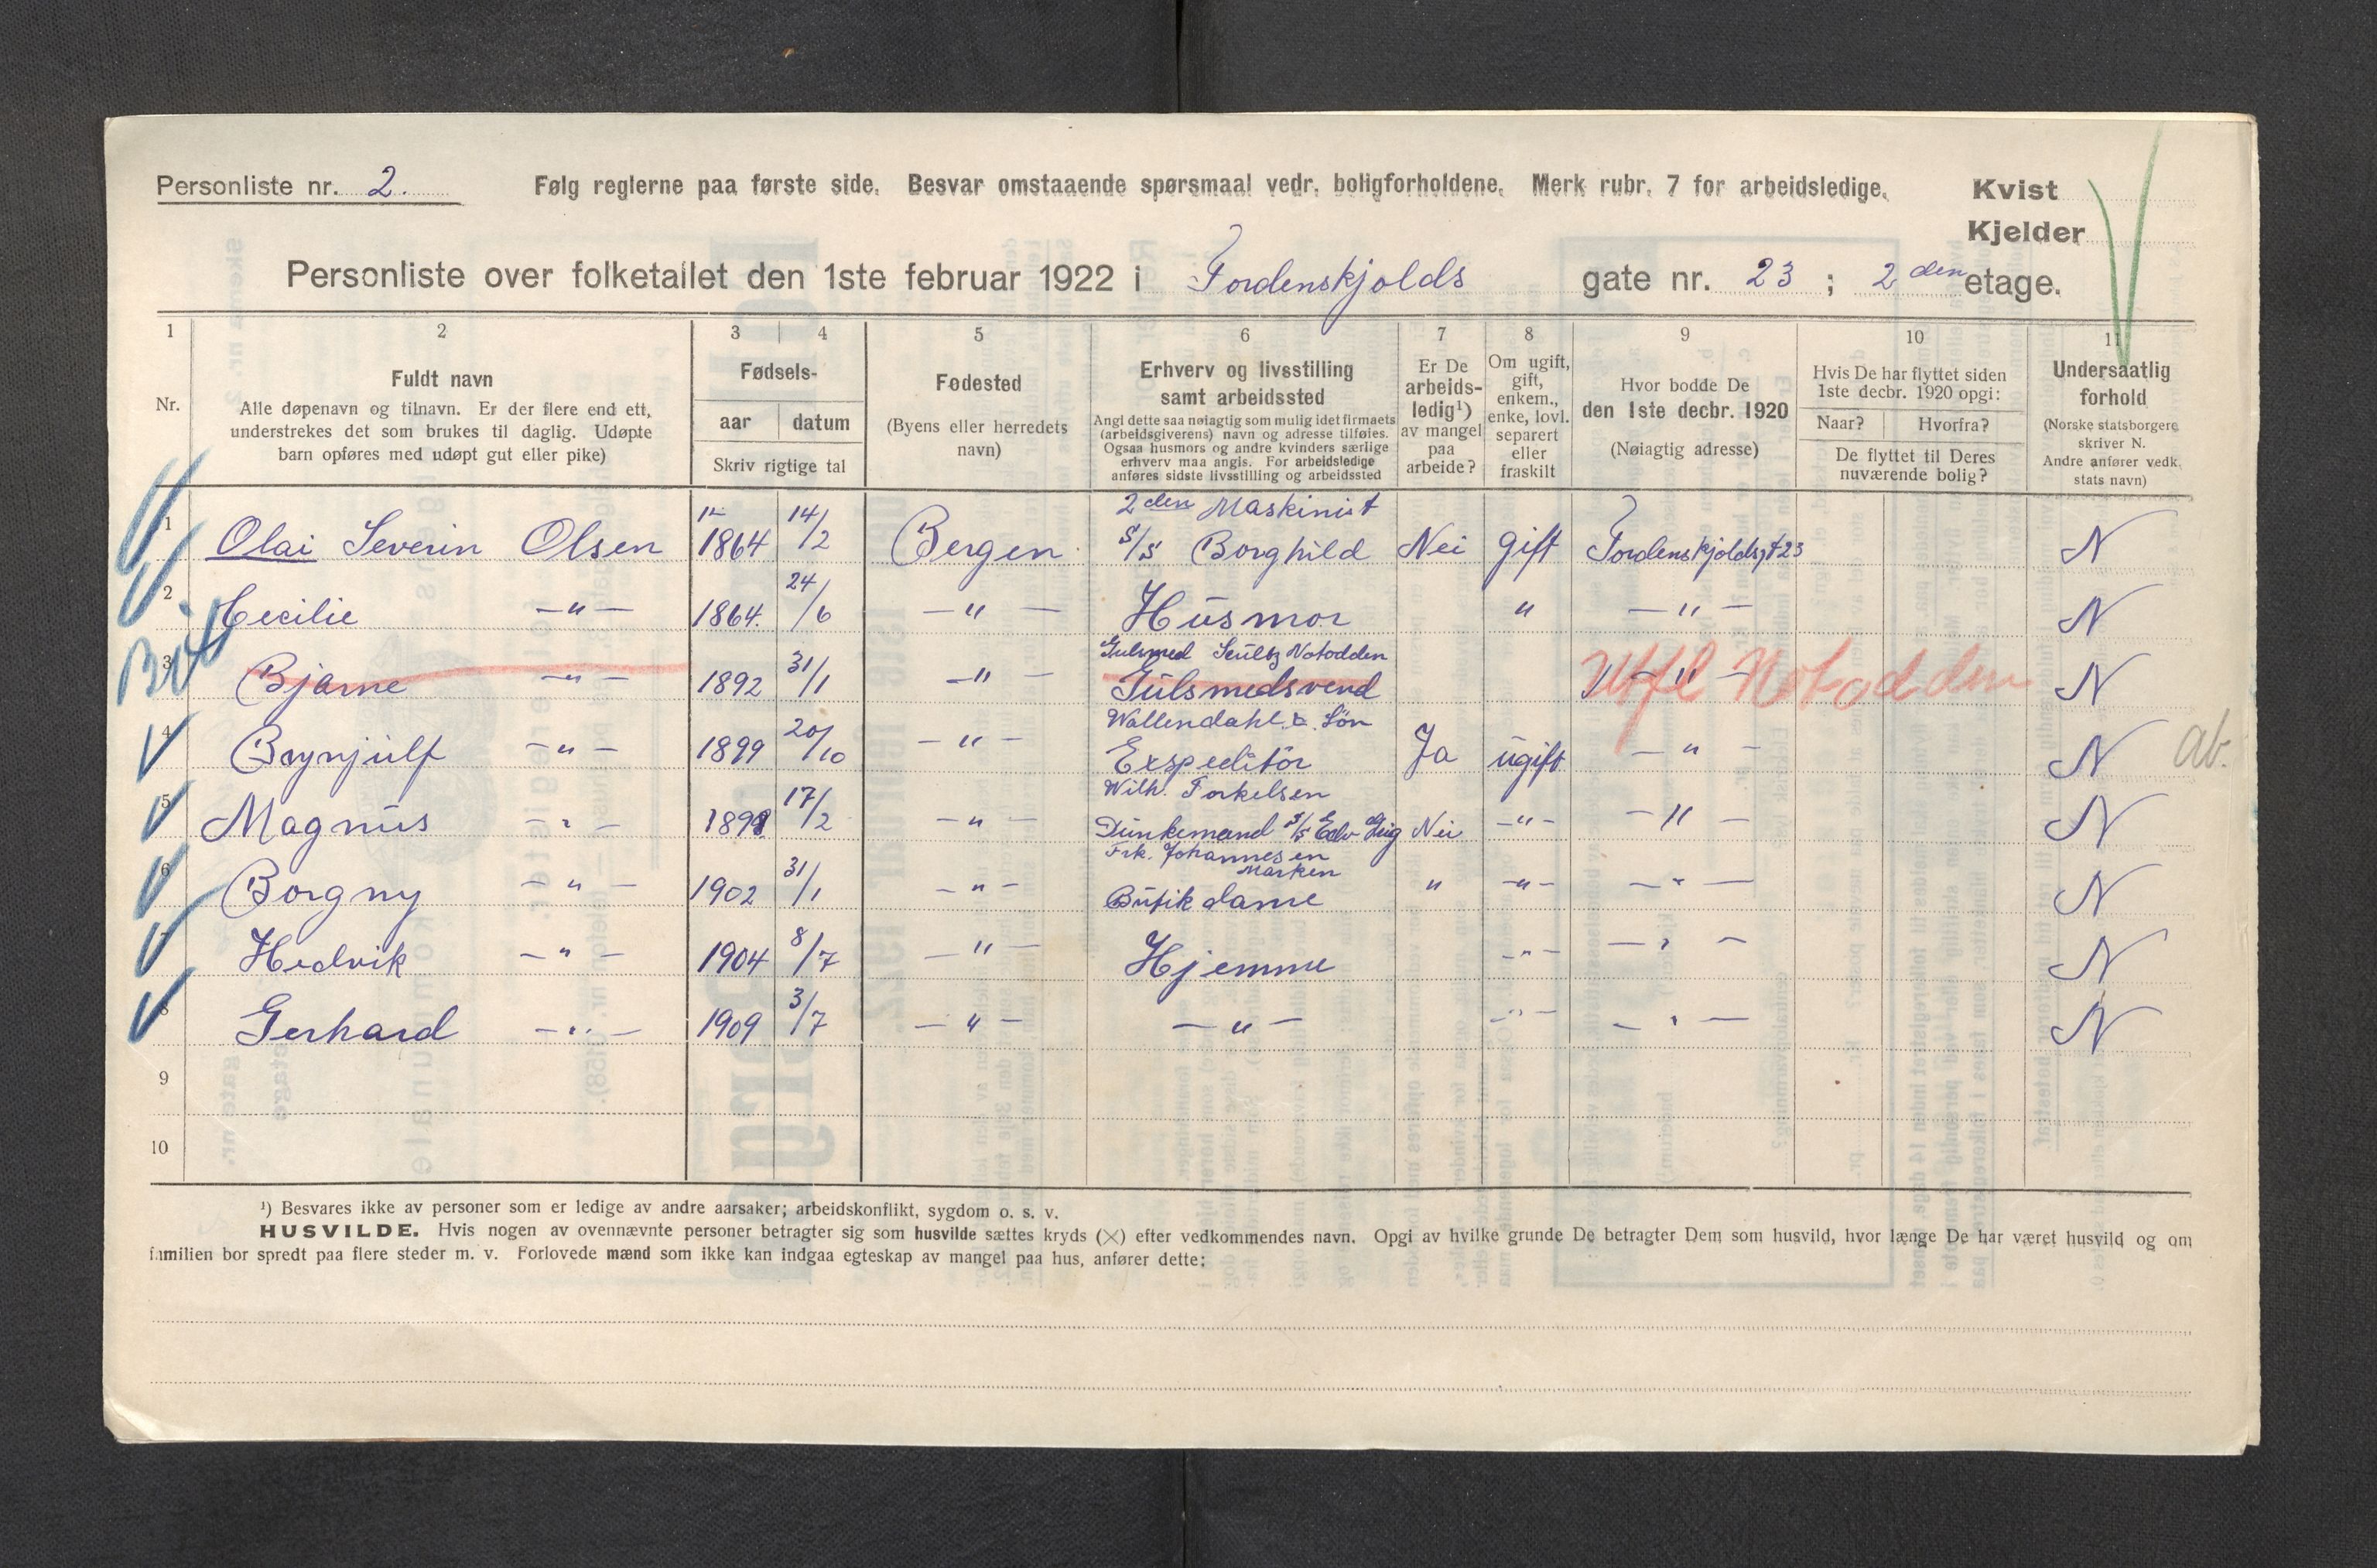 Personliste nr. 2.
Følg reglerne paa første side. Besvar omstaaende spørsmaal vedr. boligforholdene. Merk rubr. 7 for arbeidsledige.
Kvist
Kjelder
Personliste over folketallet den 1ste februar 1922 i Tordenskjolds gate nr. 23 ; 2 den etage.
1 2 3 4 5 6 7 8 9 10 11
Nr.
Fuldt navn
Alle døpenavn og tilnavn. Er der flere end ett,
understrekes det som brukes til daglig. Udøpte
barn opføres med udøpt gut eller pike)
Fødsels-
aar datum
Skriv rigtige tal
Fødested
(Byens eller herredets
navn)
Erhverv og livsstilling
samt arbeidssted
Angi dette saa nøiagtig som mulig idet firmaets
(arbeidsgiverens) navn og adresse tilføies.
Ogsaa husmors og andre kvinders særlige
erhverv maa angis. For arbeidsledige
anføres sidste livsstilling og arbeidssted
Er De
arbeids-
ledig¹)
av mangel
paa
arbeide?
Om ugift,
gift,
enkem.,
enke, lovl.
separert
eller
fraskilt
Hvor bodde De
den 1ste decbr. 1920
(Nøiagtig adresse)
Hvis De har flyttet siden
1ste decbr. 1920 opgi:
Naar? Hvorfra?
De flyttet til Deres
nuværende bolig?
Undersaatlig
forhold
(Norske statsborgere
skriver N.
Andre anfører vedk.
stats navn)
2den Maskinist
1 Olai Severin Olsen 1864 14/2 Bergen S/S Borghild Nei gift Tordenskjoldsgt 23 N
2 Cecilie —"— 1864. 24/6 —"— Husmor " —"— N
Gulsmed Scultz Notodden
3 Bjarne —"— 1892 31/1 —"— Gulsmedsvend —"— Utfl Notodden N
Wallendahl & Søn
4 Brynjulf —"— 1899 20/10 —"— Expeditør Ja ugift —"— N ab.
Wilh. Torkelsen
5 Magnus —"— 1898 17/2 —"— Dunkemand S/S Edv Grieg Nei —"— —"— N
Frk. Johannesen
Marken
6 Borgny —"— 1902 31/1 —"— Butikdame " —"— —"— N
7 Hedvik —"— 1904 8/7 —"— Hjemme —"— —"— N
8 Gerhard —"— 1909 3/7 —"— —"— —"— —"— N
9
10
¹) Besvares ikke av personer som er ledige av andre aarsaker; arbeidskonflikt, sygdom o. s. v.
HUSVILDE. Hvis nogen av ovennævnte personer betragter sig som husvilde sættes kryds (×) efter vedkommendes navn. Opgi av hvilke grunde De betragter Dem som husvild, hvor længe De har været husvild og om
familien bor spredt paa flere steder m. v. Forlovede mænd som ikke kan indgaa egteskap av mangel paa hus, anfører dette: